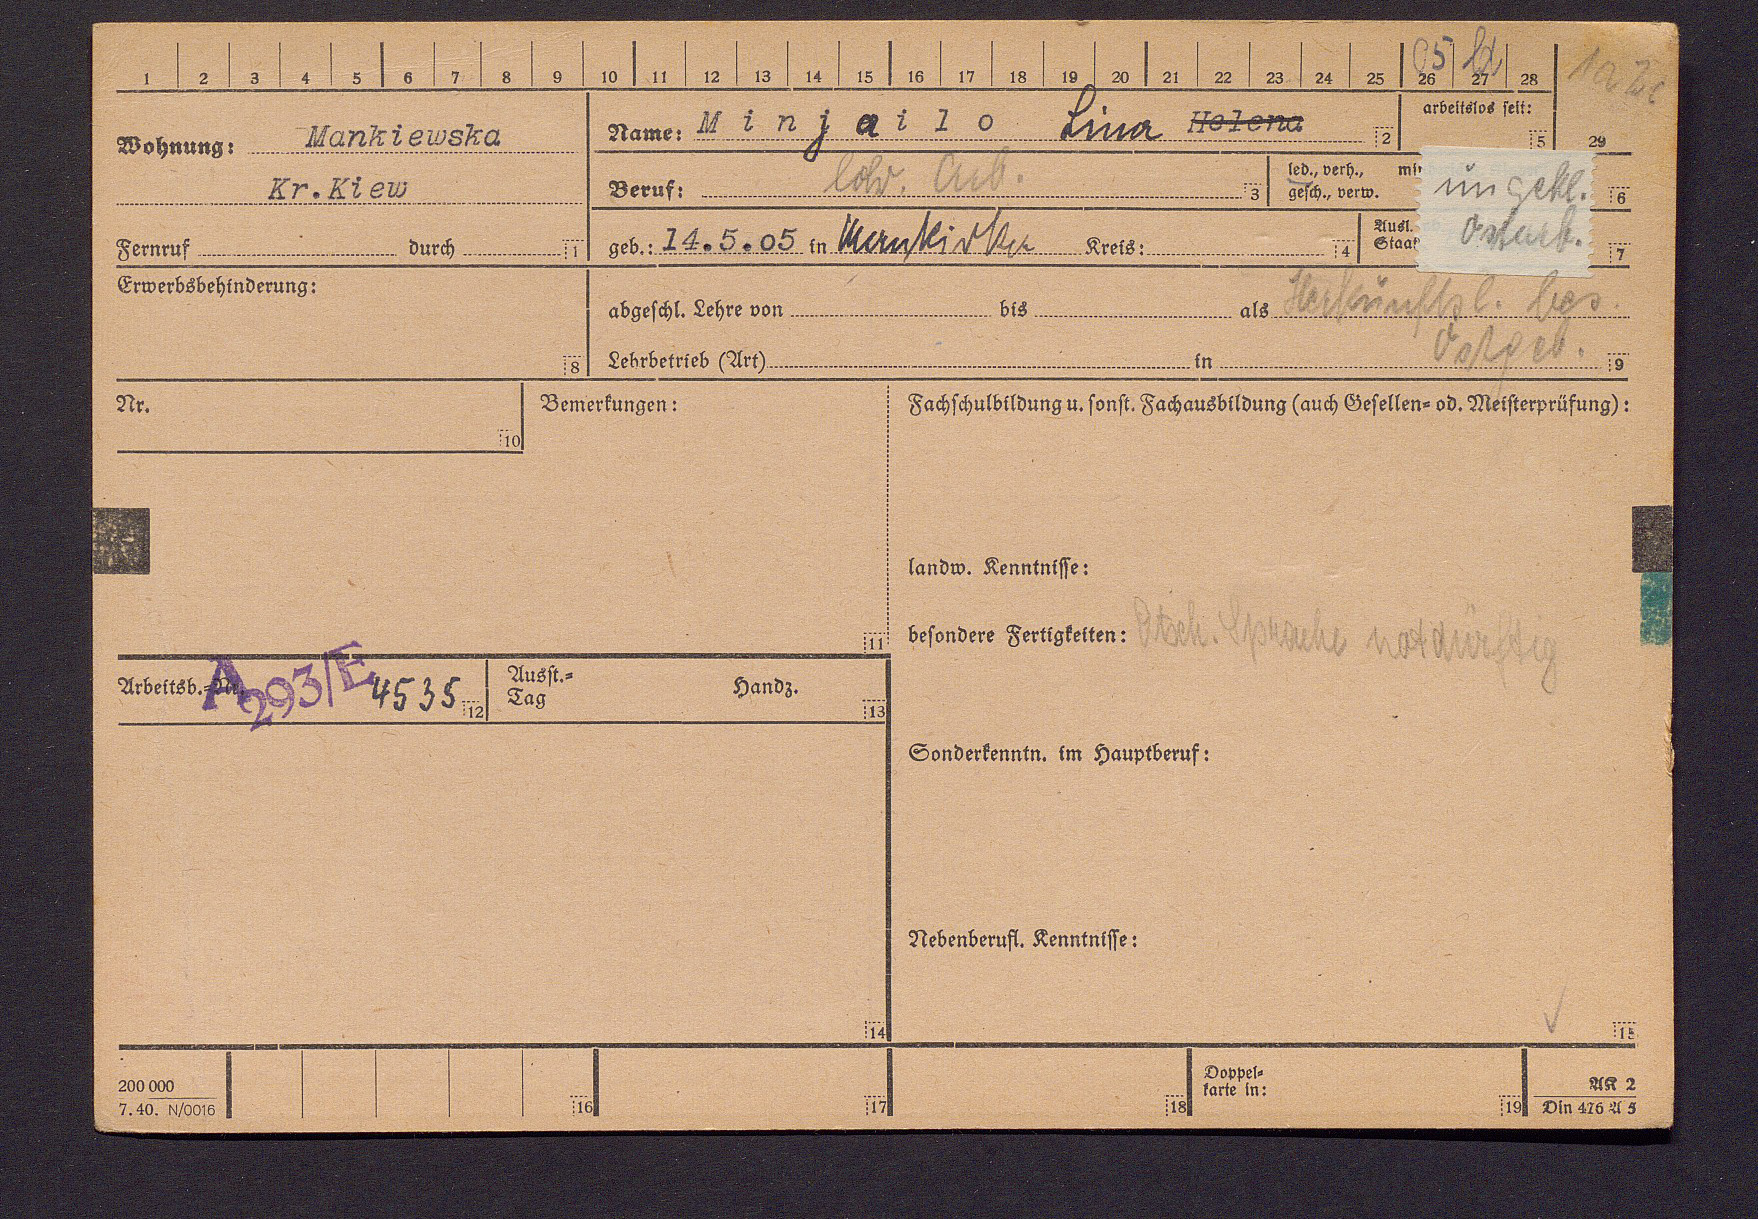 1 2 3 4 5 6 7 8 9 10 11 12 13 14 15 16 17 18 19 20 21 22 23 24 25 26 27 28
05
29
Wohnung: Mankiewska
Kr.Kiew
Fernruf durch 1
Name: Minjailo Lina Helena 2
arbeitslos seit: 5
Beruf: ldw. Arb. 3
led., verh.,
gesch., verw.
6
ungekl.
Ostarb.
geb.: 14.5.05 in Kreis: 4
Ausl.
Staat
7
Erwerbsbehinderung:
8
abgeschl. Lehre von bis als Herkunftsl. bes.
Ostgeb.
Lehrbetrieb (Art) in 9
Nr.
10
Bemerkungen:
11
Fachschulbildung u. sonst. Fachausbildung (auch Gesellen- od. Meisterprüfung):
landw. Kenntnisse:
besondere Fertigkeiten: Dtsch. Sprache notdürftig
Arbeitsb.-Nr. A 293/E 4535 12
Ausst.-
Tag
Handz.
13
Sonderkenntn. im Hauptberuf:
Nebenberufl. Kenntnisse:
14
15
200 000
7.40. N/0016
16
17
18
Doppel-
karte in:
19
AK 2
Din 476 A 5